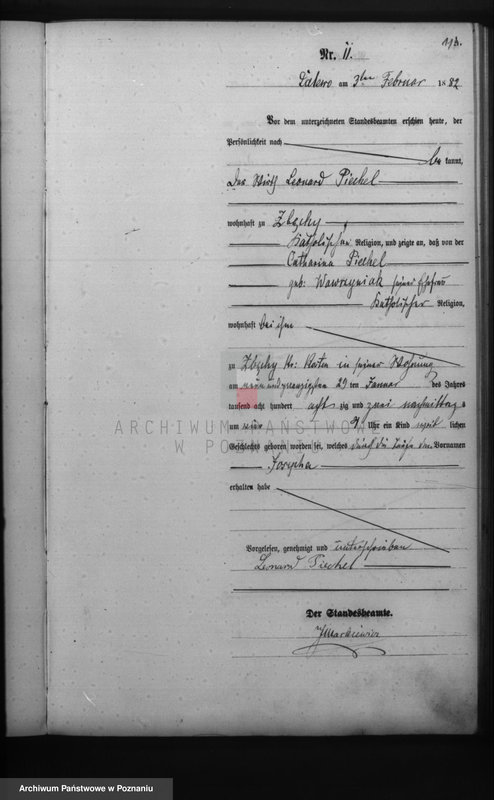 Nr. 11.
am 3ten Februar 1882
Vor dem unterzeichneten Standesbeamten erschien heute, der
Persönlichkeit nach
be kannt,
der Wirth Leonard Piechel
wohnhaft zu
katholischer Religion, und zeigte an, daß von der
Catharina Piechel
geb: Wawrzyniak seiner Ehefrau
katholischer Religion,
wohnhaft bei ihm
zu in seiner Wohnung
am neun und zwanzigsten 29 ten Januar des Jahres
tausend acht hundert acht zig und zwei nachmittag s
um neun 9 Uhr ein Kind weib lichen
Geschlechts geboren worden sei, welches durch die Taufe den Vornamen
Josepha
erhalten habe
Vorgelesen, genehmigt und unterschrieben
Leonard Piechel
Der Standesbeamte.
ARCHIWUM PAŃSTWOWE
W POZNANIU
Archiwum Państwowe w Poznaniu